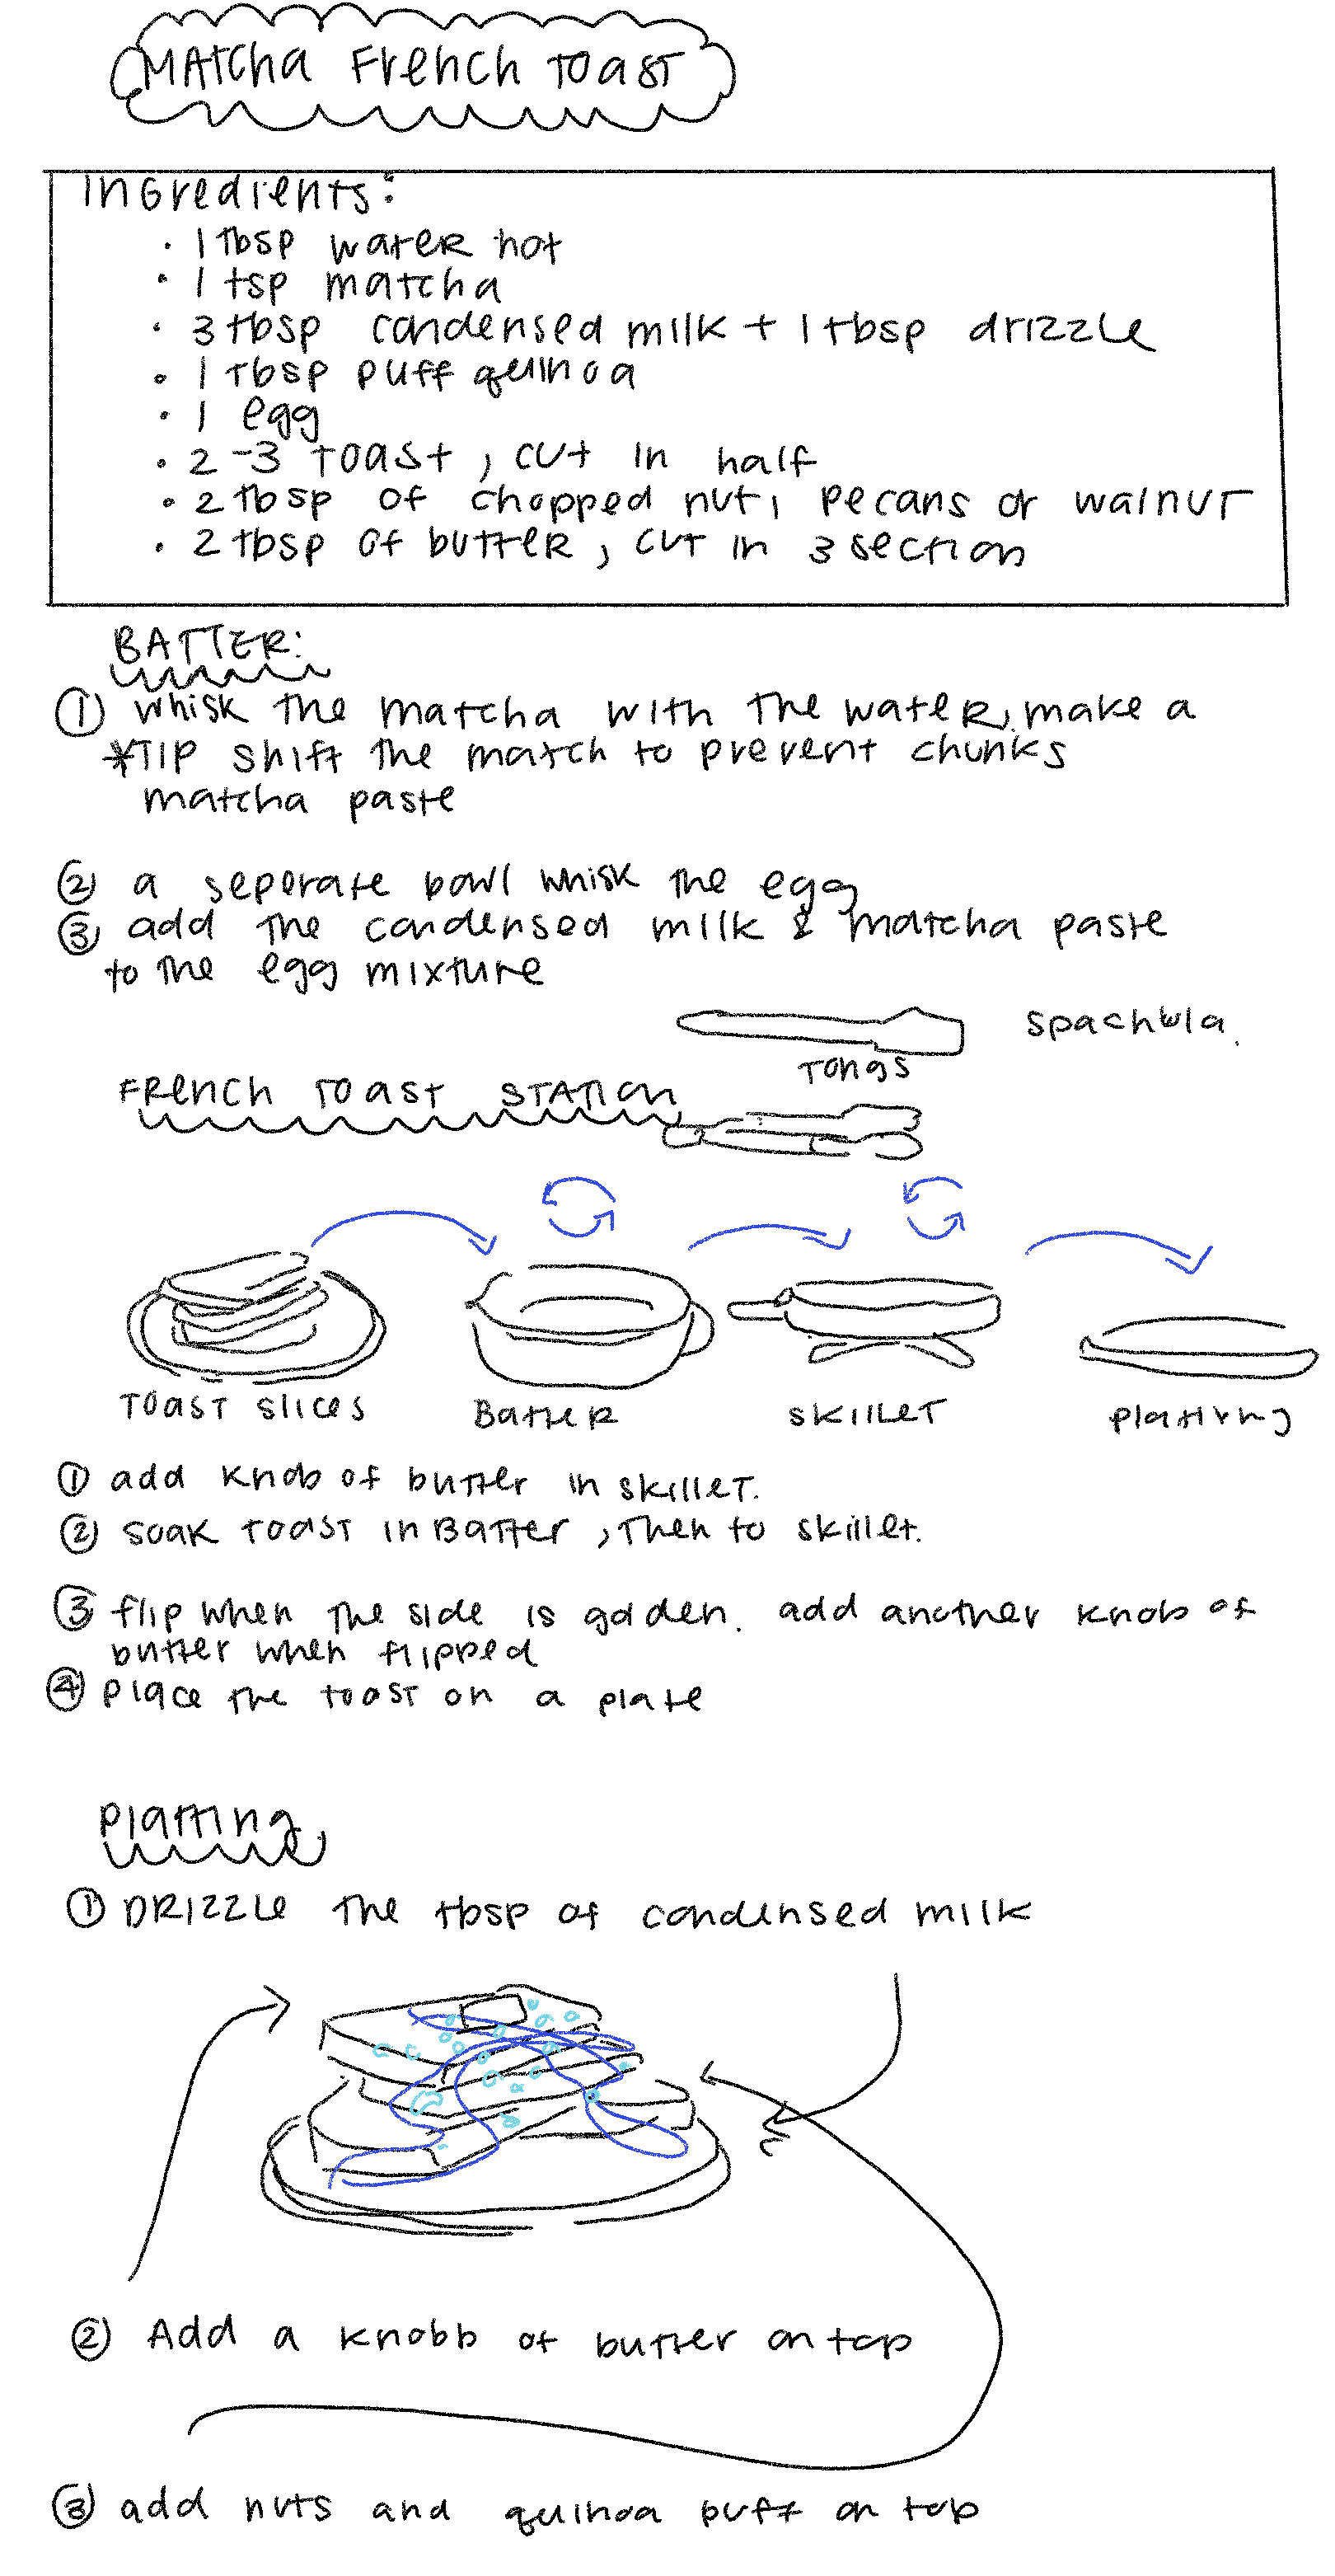 MATCHA FRENCH TOAST
INGREDIENTS:
· 1 tbsp water hot
· 1 tsp matcha
· 3 tbsp condensed milk + 1 tbsp drizzle
· 1 tbsp puff quinoa
· 1 egg
· 2-3 toast, cut in half
· 2 tbsp of chopped nut, pecans or walnut
· 2 tbsp of butter, cut in 3 section
BATTER:
① whisk the matcha with the water, make a
*TIP shift the match to prevent chunks
matcha paste
② a seperate bowl whisk the egg
③ add the condensed milk & matcha paste
to the egg mixture
spachula.
TONGS
FRENCH TOAST STATION
TOAST SLICES BATTER SKILLET plating
① add knob of butter in skillet.
② soak toast in Batter, then to skillet.
③ flip when the side is golden. add another knob of
butter when flipped
④ place the toast on a plate
Platting
① DRIZZLE the tbsp of condensed milk
② Add a knobb of butter on top
③ add nuts and quinoa puff on top